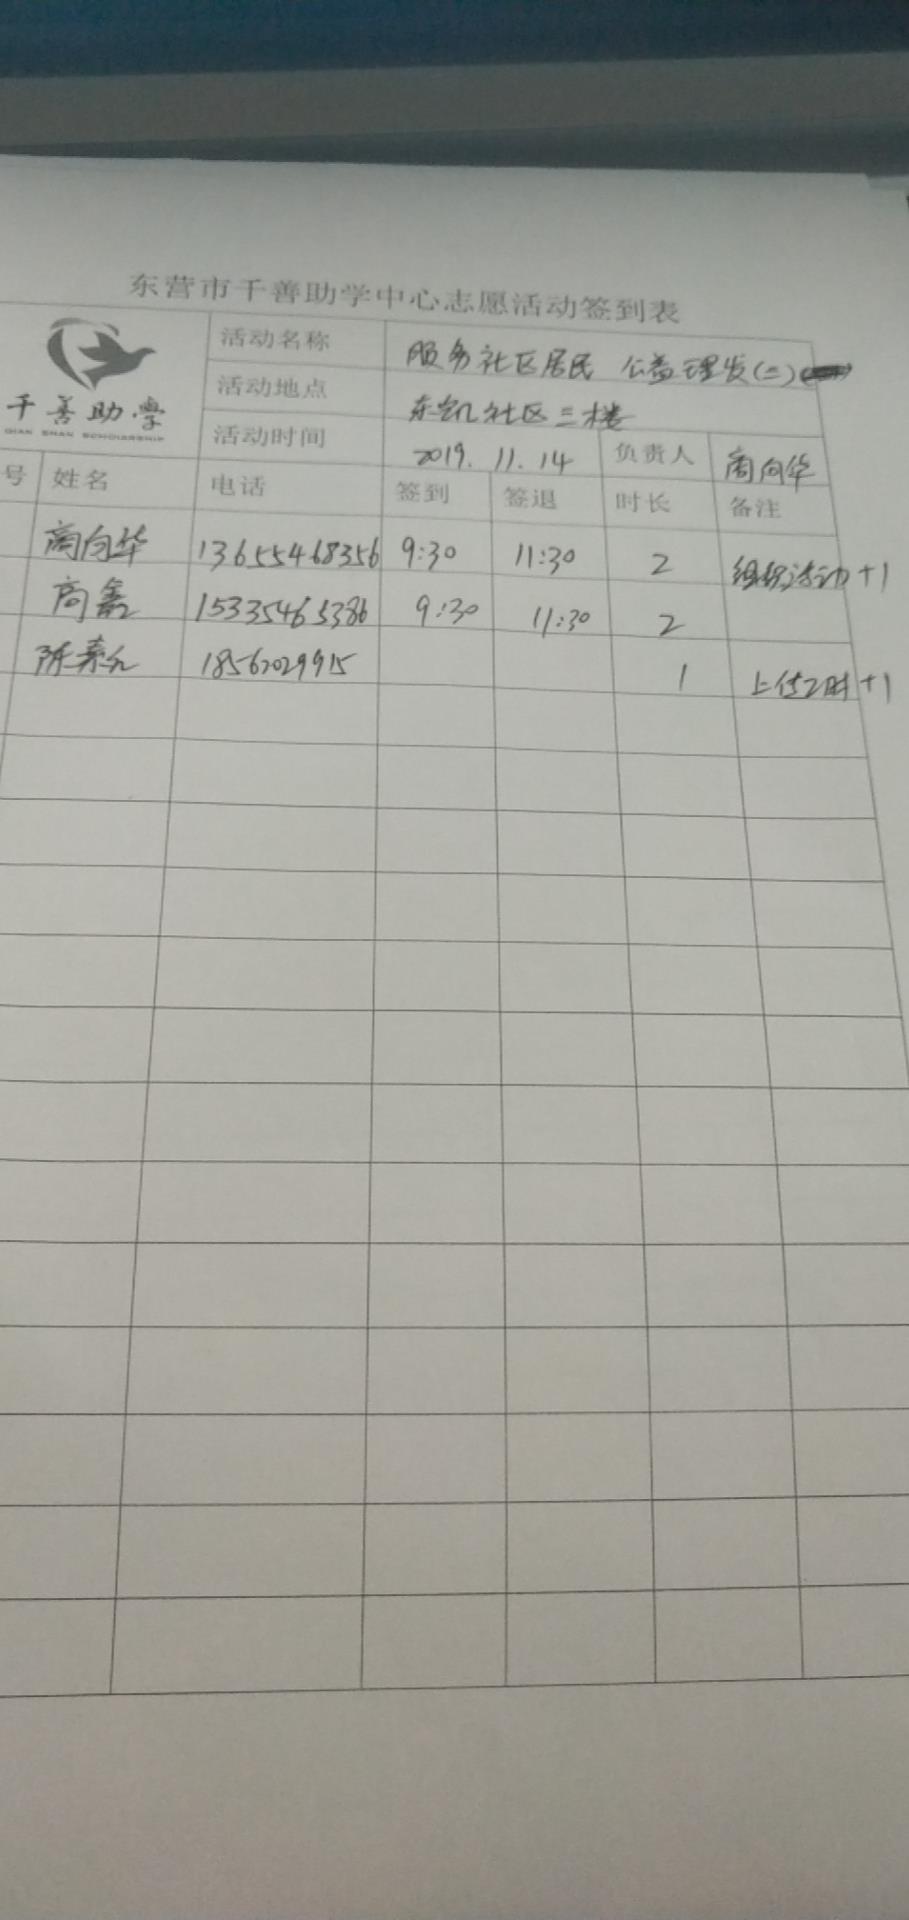 东营市千善助学中心志愿活动签到表
千善助学
QIAN SHAN SCHOLARSHIP
活动名称 服务社区居民 公益理发(二)
活动地点 东凯社区三楼
活动时间 2019.11.14 负责人 商向华
号 姓名 电话 签到 签退 时长 备注
商向华 13655468356 9:30 11:30 2 组织活动+1
商鑫 15335465386 9:30 11:30 2
18562029915 1 上传工时+1